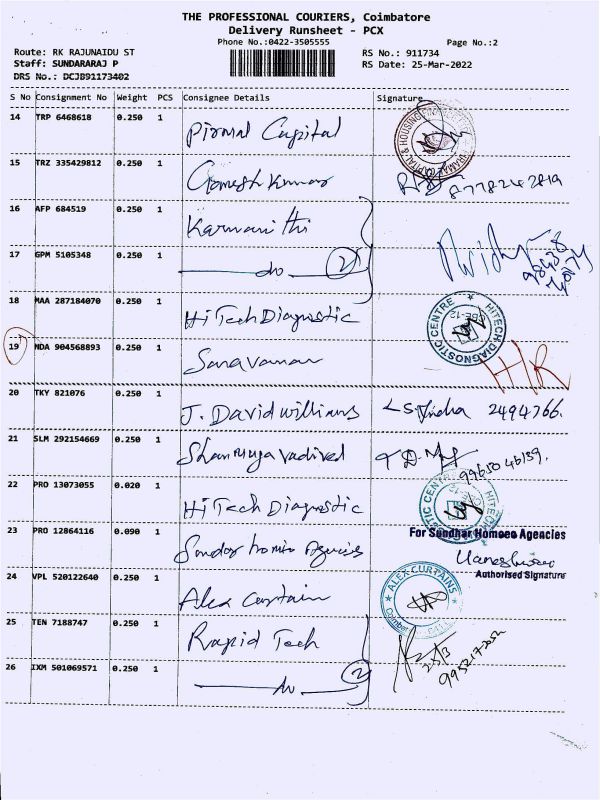 THE PROFESSIONAL COURIERS, Coimbatore
Delivery Runsheet - PCX
Phone No.:0422-3505555
Page No.:2
Route: RK RAJUNAIDU ST
RS No.: 911734
Staff: SUNDARARAJ P
RS Date: 25-Mar-2022
DRS No.: DCJB91173402
S No Consignment No Weight PCS Consignee Details Signature
14 TRP 6468618 0.250 1 Pirmal Capital
15 TRZ 335429812 0.250 1 Ganesh Kumar 8778242819
16 AFP 684519 0.250 1 Karunanithi
17 GPM 5105348 0.250 1 do 2
18 MAA 287184070 0.250 1 HiTech Diagnostic
HITECH DIAGNOSTIC CENTRE
CBE-12
19 NDA 904568893 0.250 1 Saravanan H/R
20 TKY 821076 0.250 1 J. David williams 2494766.
21 SLM 292154669 0.250 1 Shanmuga vadivel
22 PRO 13073055 0.020 1 HiTech Diagnostic
For Sundhar Homoeo Agencies
23 PRO 12864116 0.090 1 Sundar homio Agencies
Authorised Signature
24 VPL 520122640 0.250 1 Alex Curtain
ALEX CURTAINS
25 TEN 7188747 0.250 1 Rapid Tech
26 IXM 501069571 0.250 1 do 2
25/3